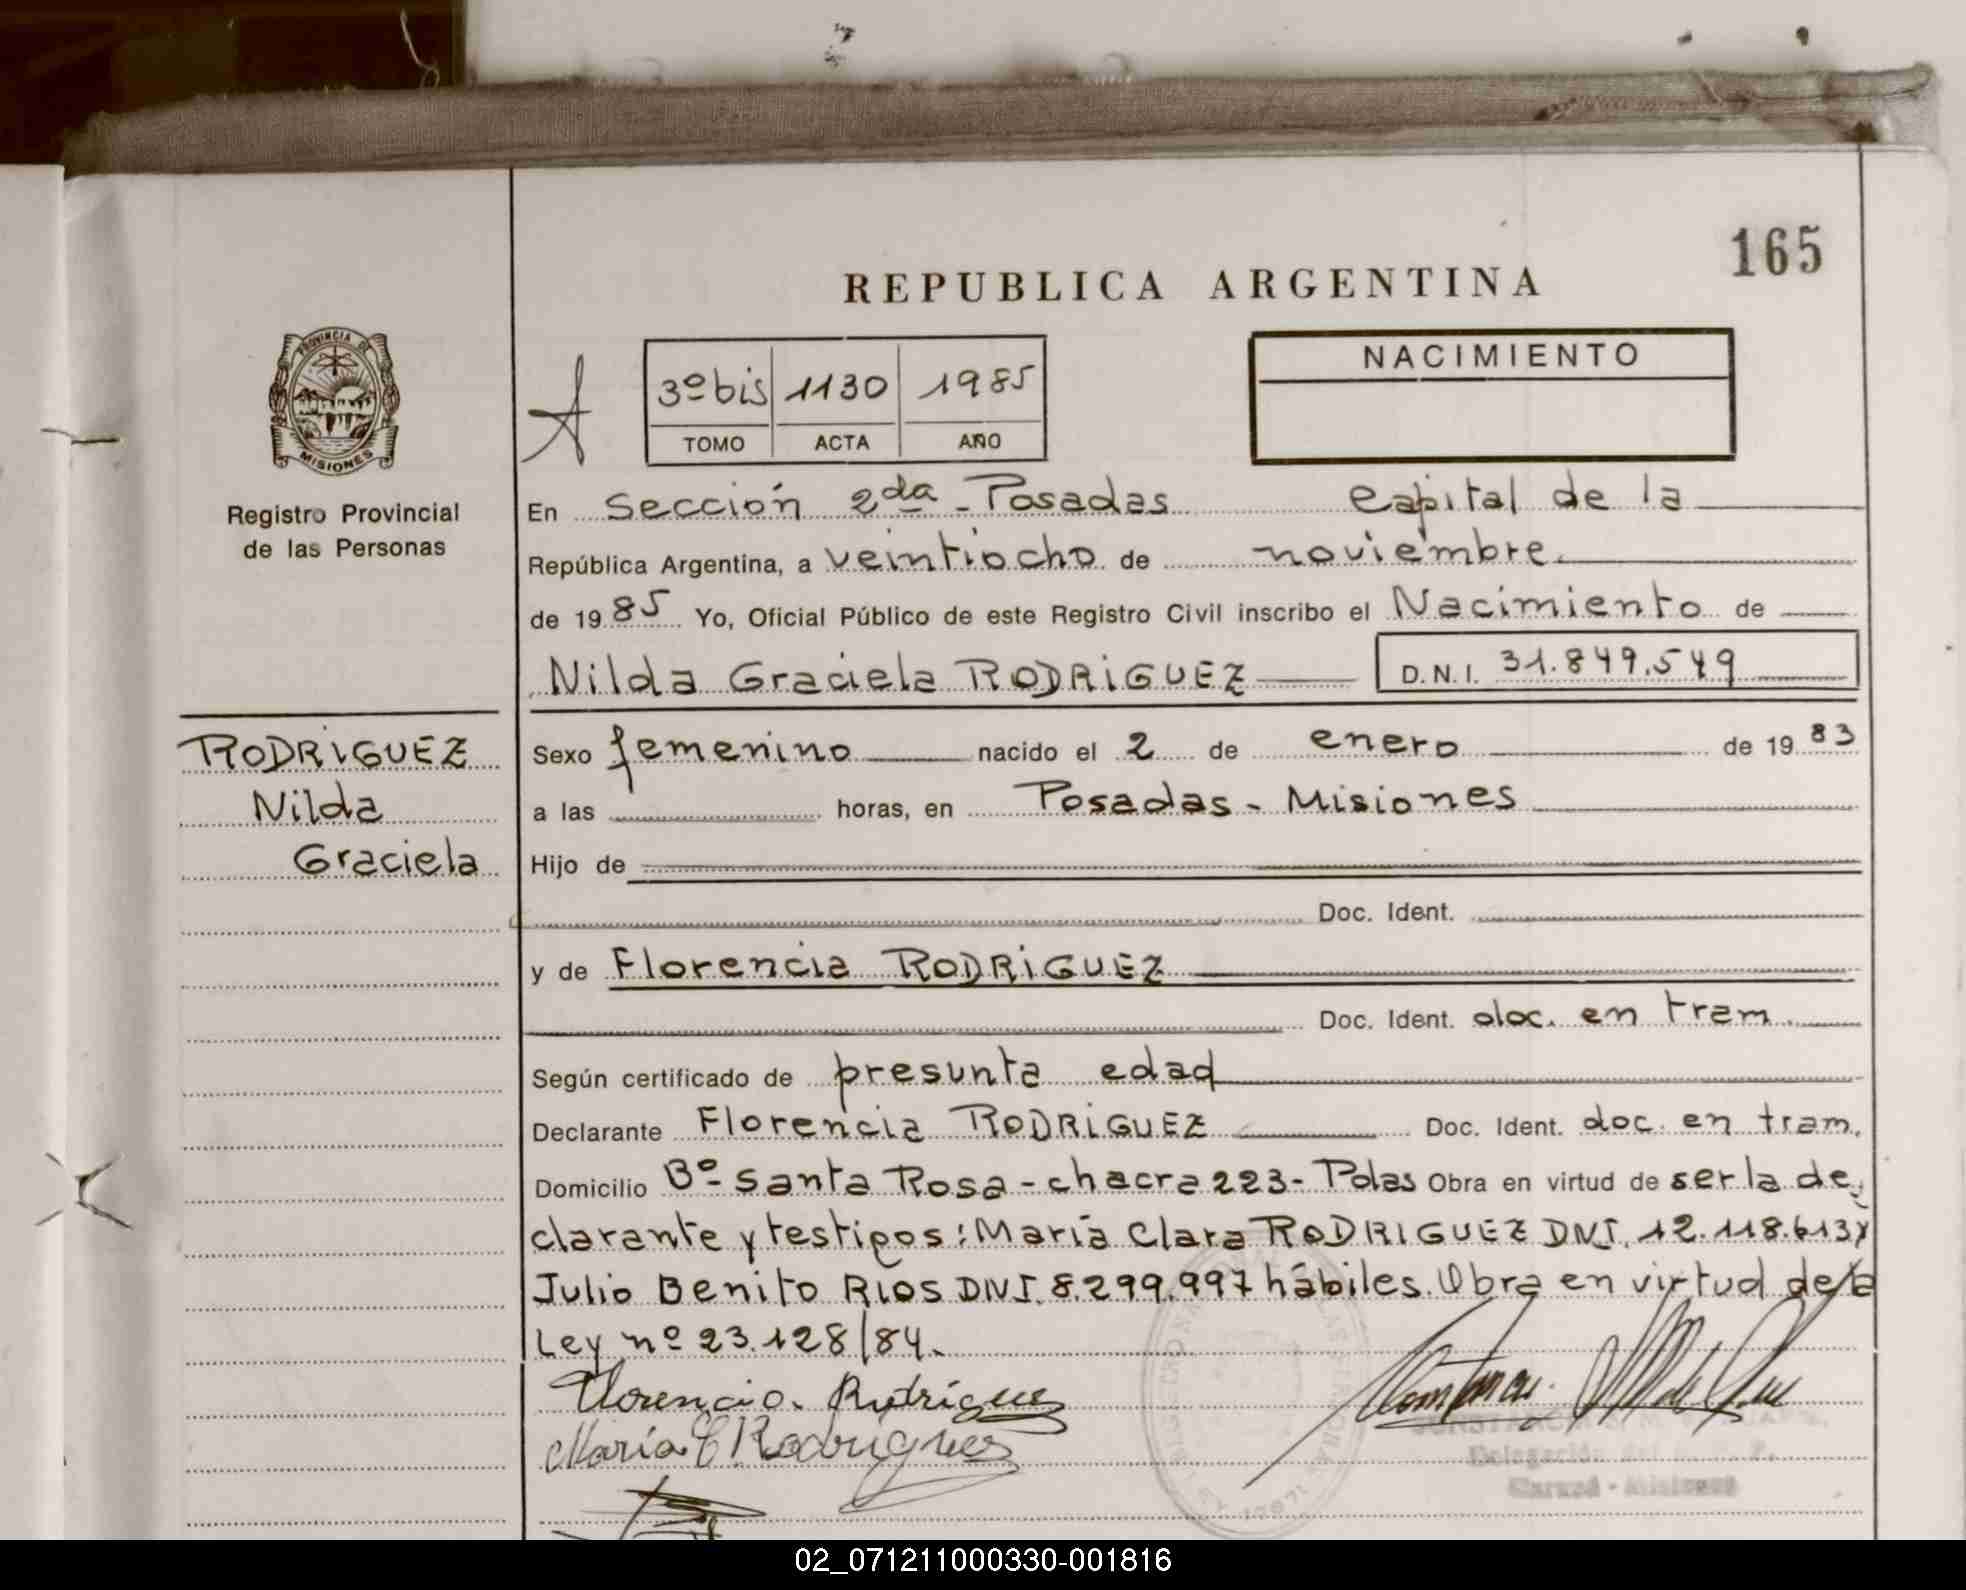 165
REPUBLICA ARGENTINA
NACIMIENTO
3º bis 1130 1985
TOMO ACTA AÑO
PROVINCIA DE MISIONES
Registro Provincial
de las Personas
En Sección 2da - Posadas Capital de la
República Argentina, a veintiocho de noviembre.
de 1985 Yo, Oficial Público de este Registro Civil inscribo el Nacimiento de
Nilda Graciela RODRIGUEZ D.N.I. 31.849.549
RODRIGUEZ
Nilda
Graciela
Sexo femenino nacido el 2 de enero de 1983
a las horas, en Posadas - Misiones
Hijo de
Doc. Ident.
y de Florencia RODRIGUEZ
Doc. Ident. doc. en tram.
Según certificado de presunta edad
Declarante Florencia RODRIGUEZ Doc. Ident. doc. en tram.
Domicilio Bº Santa Rosa - chacra 223 - Pdas Obra en virtud de ser la de
clarante y testigos: María Clara RODRIGUEZ DNI. 12.118.613 y
Julio Benito RIOS DNI. 8.299.997 hábiles. Obra en virtud de la
Ley nº 23.128/84.
Florencia Rodriguez
María C Rodriguez
Delegación del
02_071211000330-001816